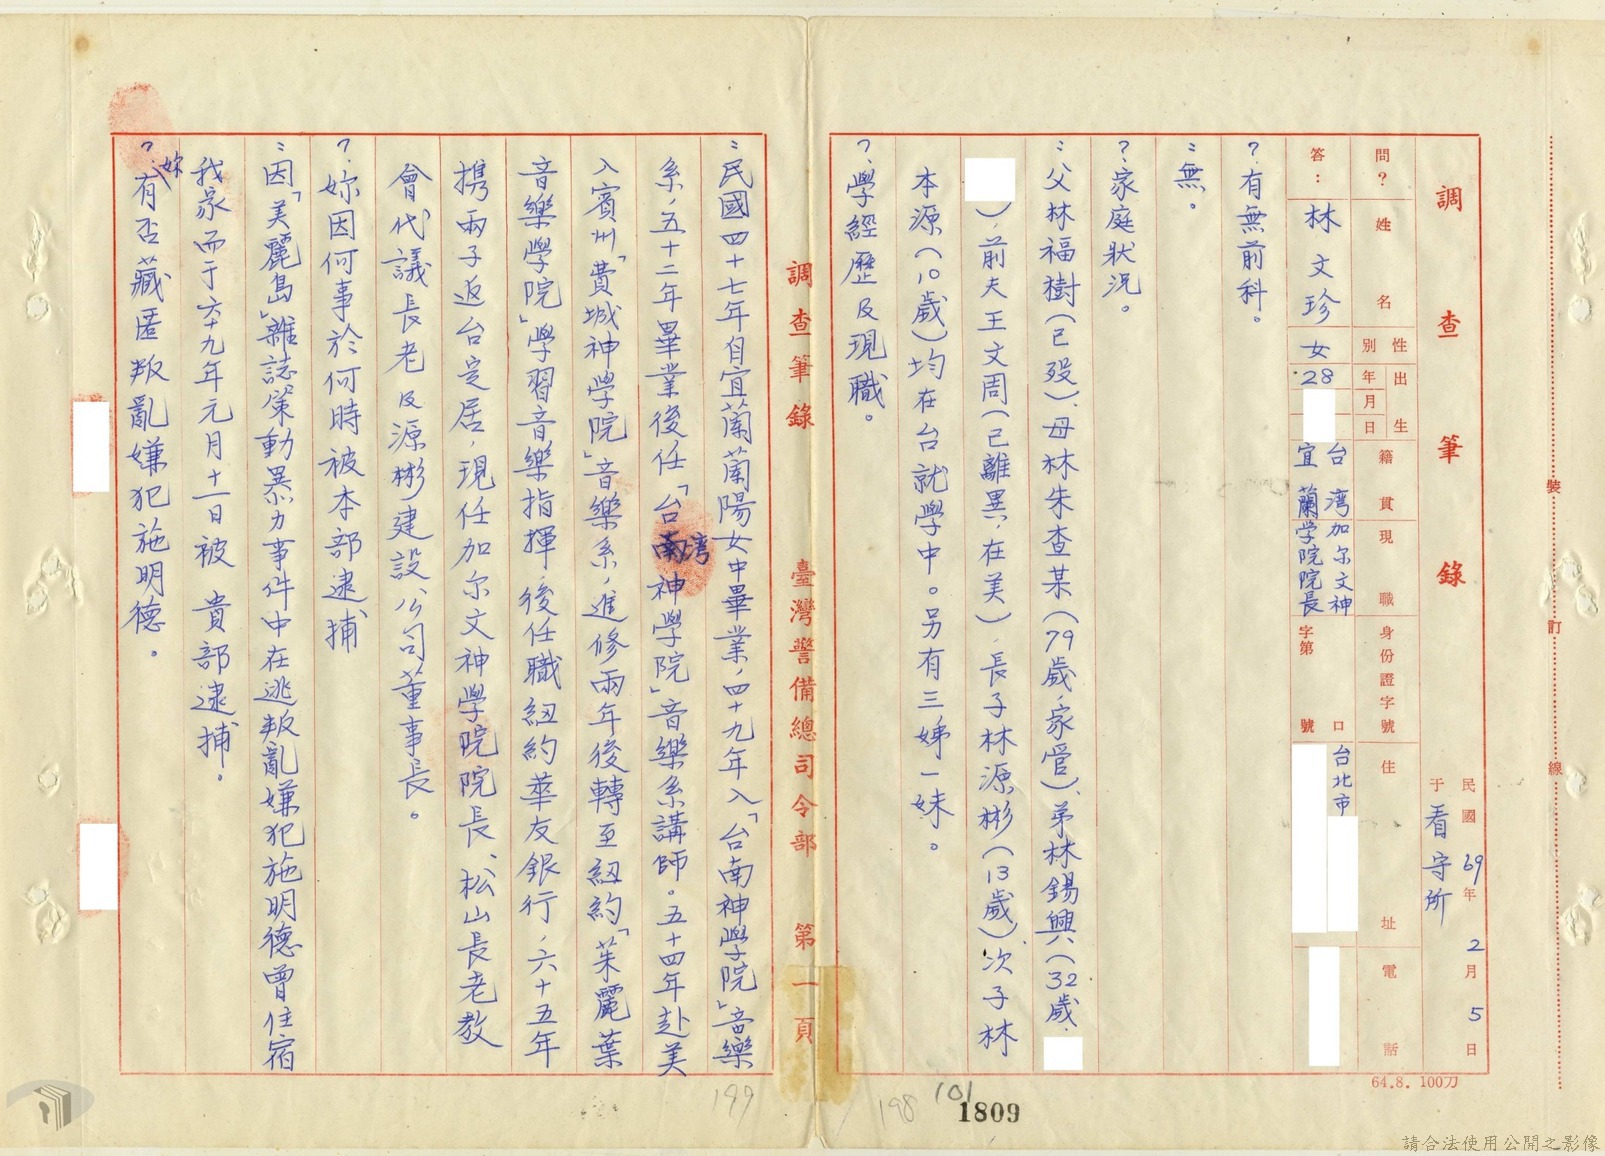 調查筆錄
民國69年2月5日
于看守所
問？
答：
姓名
林文珍
性別
女
出生年月日
28
籍貫
台灣宜蘭
現職
加尔文神学院院長
身份證字號
字第
口號
住址
台北市
電話
？有無前科。
：無。
？家庭狀況。
：父林福樹（已殁）、母林朱查某（79歲，家管）、弟林錫興（32歲、
），前夫王文周（已離異，在美），長子林源彬（13歲）次子林
本源（10歲）均在台就學中。另有三姊一妹。
？學經歷及現職。
臺灣警備總司令部
調查筆錄
第一頁
：民國四十七年自宜蘭蘭陽女中畢業，四十九年入「台南神學院」音樂
系，五十二年畢業後任「台灣神學院」音樂系講師。五十四年赴美
入賓州「費城神學院」音樂系，進修兩年後轉至紐約「茱麗葉
音樂學院」學習音樂指揮，後任職紐約華友銀行，六十五年
携兩子返台定居，現任加尔文神學院院長、松山長老教
會代議長老及源彬建設公司董事長。
？妳因何事於何時被本部逮捕
：因「美麗島」雜誌策動暴力事件中在逃叛亂嫌犯施明德曾住宿
我家而于六十九年元月十一日被 貴部逮捕。
？妳有否藏匿叛亂嫌犯施明德。
裝訂線
64.8. 100刀
199
198
101
1809
請合法使用公開之影像